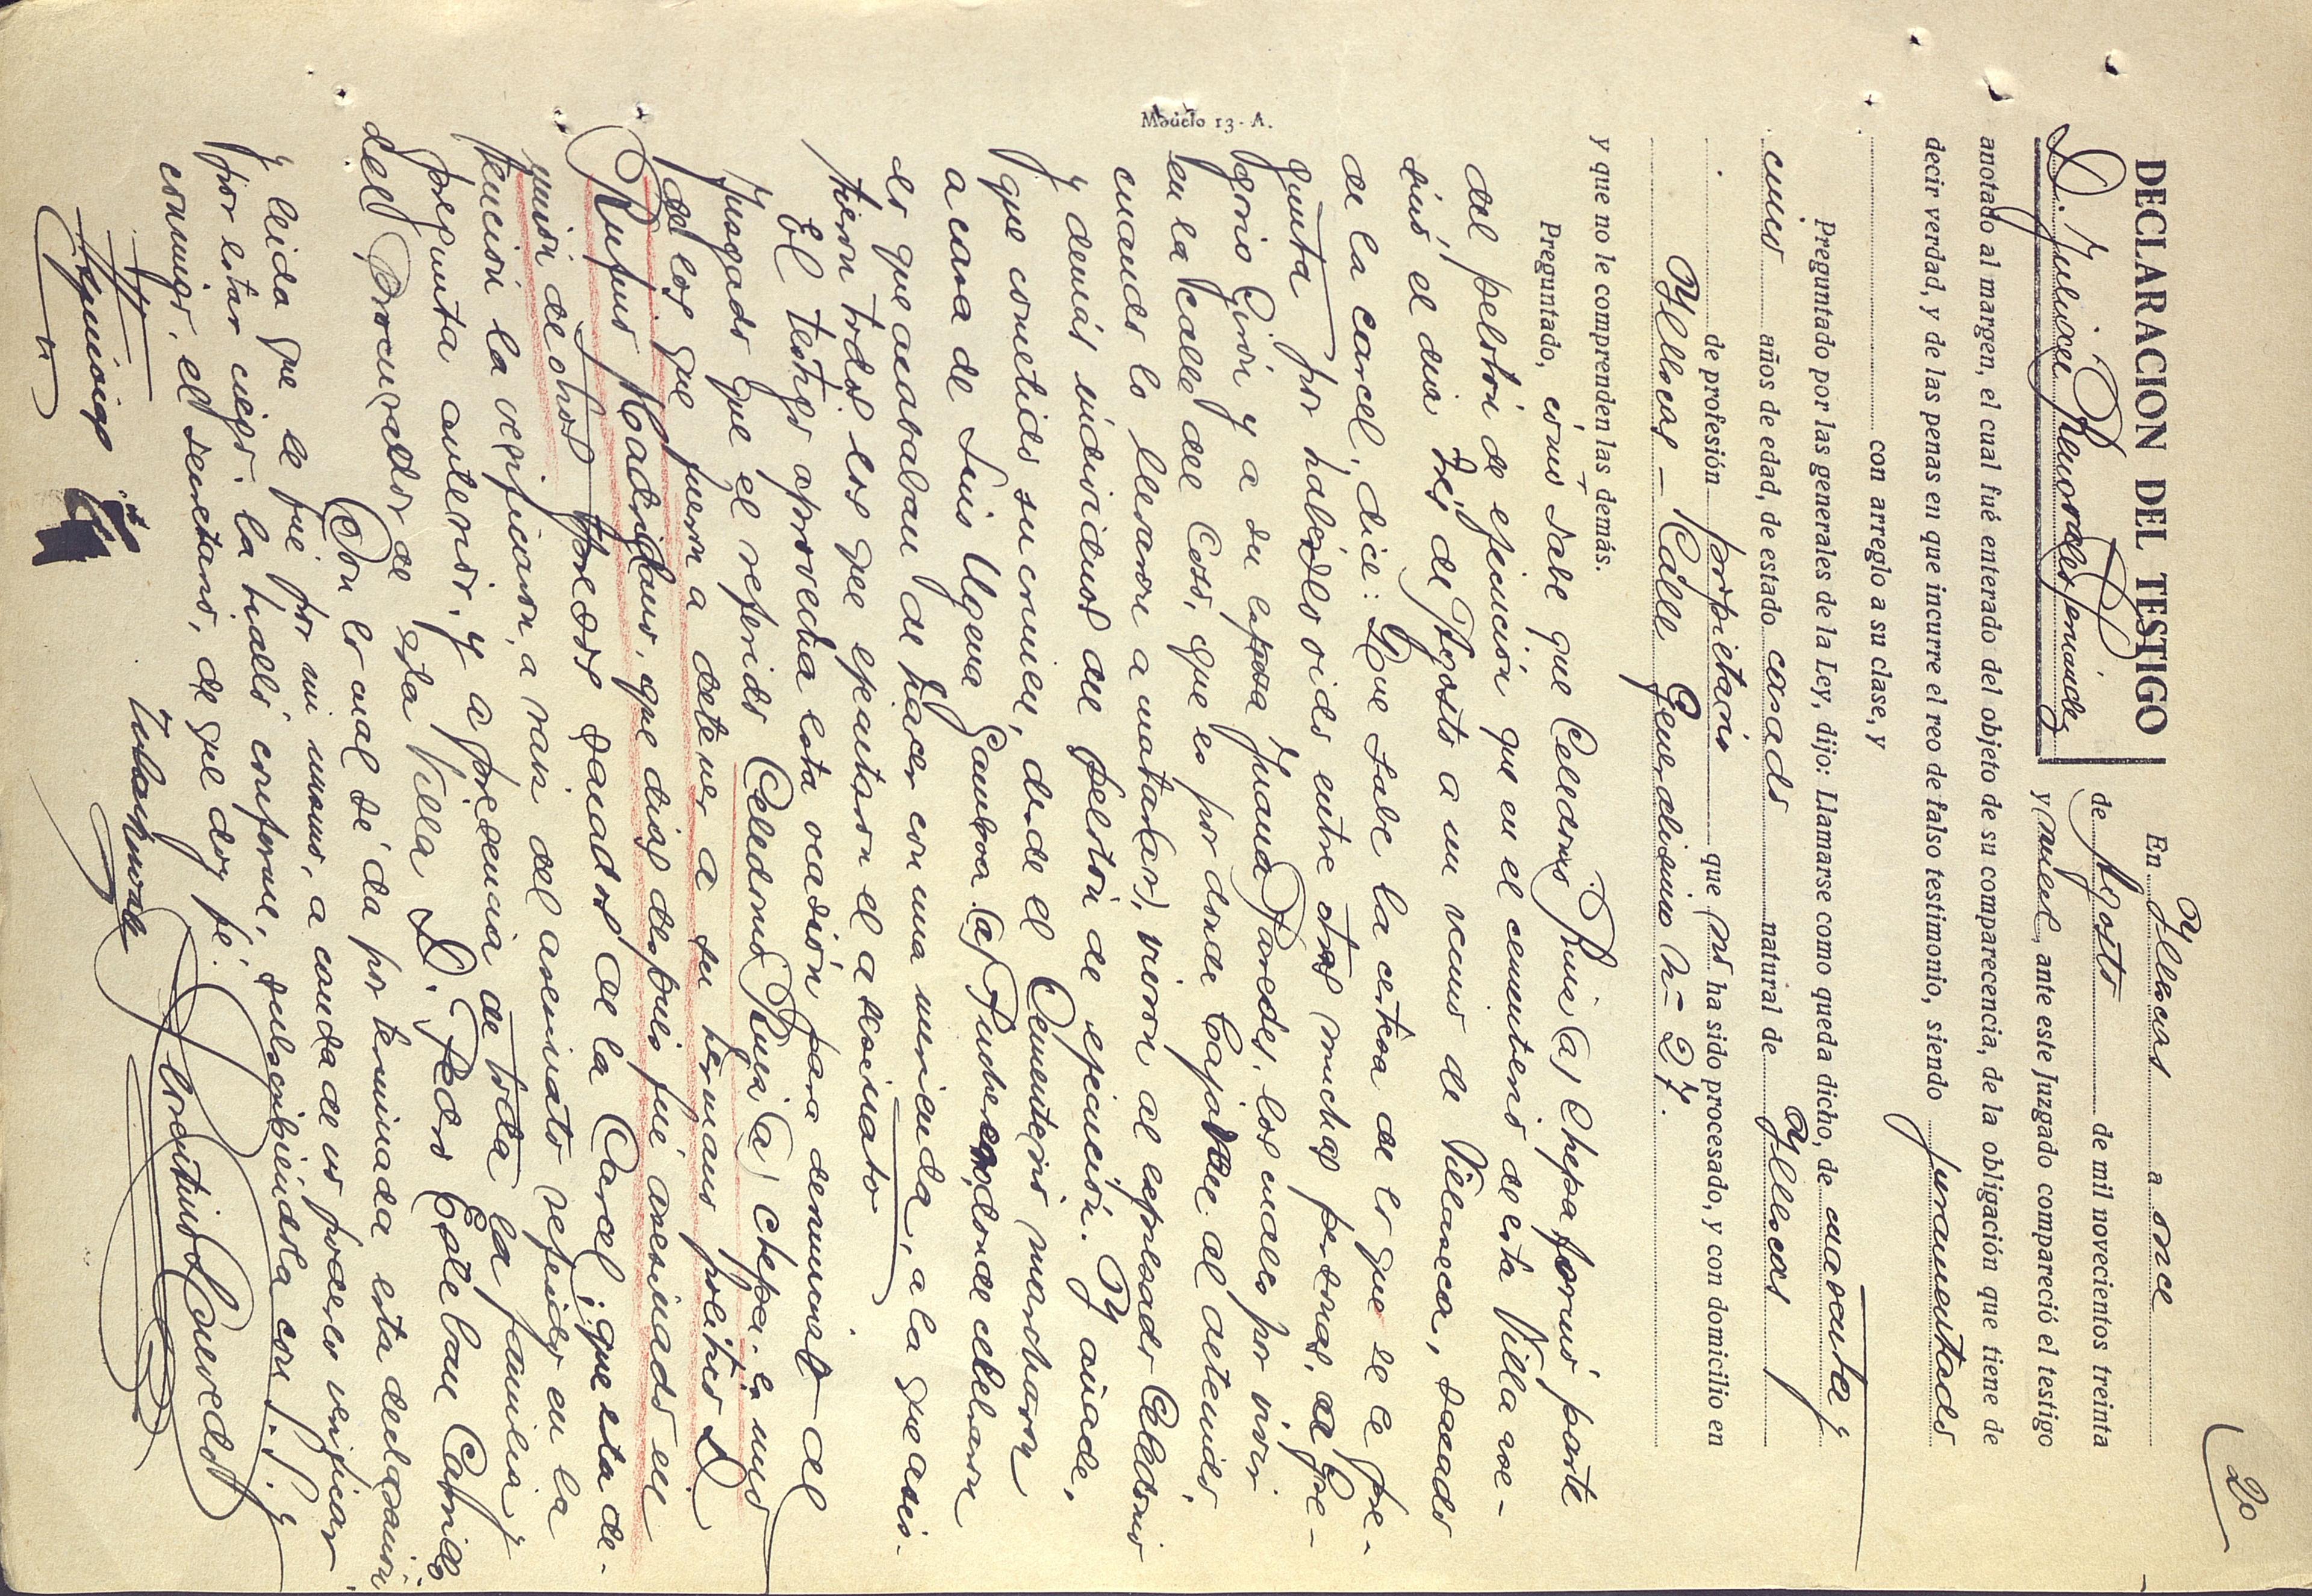 20
DECLARACION DEL TESTIGO
D. Julián Renovales Fernández
En Yllescas a once
de Agosto de mil novecientos treinta
y nueve, ante este Juzgado compareció el testigo
anotado al margen, el cual fué enterado del objeto de su comparecencia, de la obligación que tiene de
decir verdad, y de las penas en que incurre el reo de falso testimonio, siendo juramentado
con arreglo a su clase, y
Preguntado por las generales de la Ley, dijo: Llamarse como queda dicho, de cuarenta y
cinco años de edad, de estado casado natural de Yllescas
de profesión propietario que no ha sido procesado, y con domicilio en
Yllescas - Calle Generalisimo nº 27.
y que no le comprenden las demás.
Preguntado, cómo sabe que Celedonio Ruiz (a) Chepa, formó parte
del pelotón de ejecución que en el cementerio de esta Villa ase-
sinó, el dia tres de Agosto a un vecino de Villaseca, sacado
de la carcel, dice: Que sabe la certeza de lo que se le pre-
gunta por habérselo oido entre otras muchas personas, a Gre-
gorio Giron y a su esposa Juana Paredes, los cuales por vivir
en la calle del Coso, que es por donde bajaron al detenido,
cuando lo llevaron a matarlo, vieron al expresado Celedonio
y demás individuos del pelotón de ejecución. Y añade,
que cometido su crimen, desde el Cementerio marcharon
a casa de Luis Ugena Gamboa (a) Pucherero, donde celebraron
lo que acababan de hacer con una merienda, a la que asis-
tieron todos los que ejecutaron el asesinato
El testigo aprovecha esta ocasión para denunciar al
Juzgado que el referido Celedonio Ruiz (a) Chepa, es uno
de los que fueron a detener a su hermano politico D.
Rufino Madridano, que dias despues fué asesinado en
union de otros presos sacados de la Carcel; que esta de-
tencion la verificaron, a raiz del asesinato referido en la
pregunta anterior, y a presencia de toda la familia y
del Procurador de esta Villa D. Pedro Esteban Cabrido
Con lo cual se da por terminada esta declaracion
y leida que le fué por mi mismo, a causa de no poderlo verificar
por estar ciego, la halló conforme, subscribiéndola con S. S. y
conmigo, el secretario, de que doy fé.
Julian Renovales
Modelo 13 - A.